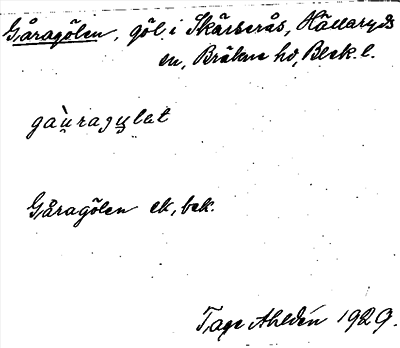 Gåragölen, göl i Skärserås, Hällaryds
en, Bräkne hd, Blek. l.
gau̠ragy̠lət
Gåragölen ek, bek.
Tage Ahldén 1929.